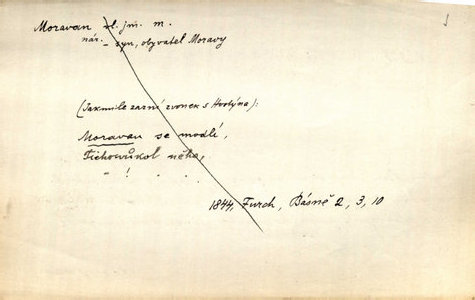 Moravan vl. jm. m.
nár. - syn, obyvatel Moravy
(Jakmile zazní zvonek s Hostýna):
Moravan se modlí,
Ticho vůkol něho,
" ! . .
1844, Furch, Básně 2, 3, 10